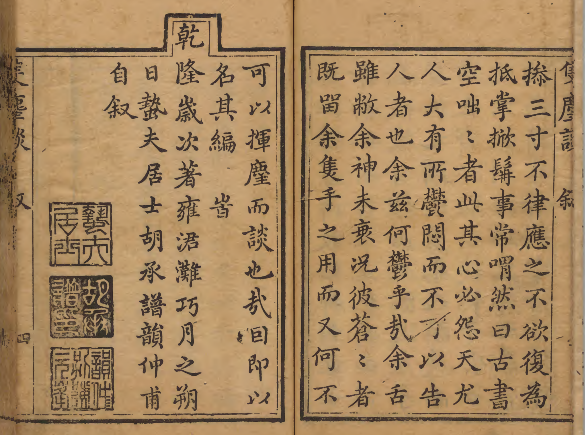 隻麈談 叙
搽三寸不律應之不欲復為
抵掌掀髯事常喟然曰古書
空咄〻者此其心必怨天尤
人大有所鬱悶而不可以告
人者也余茲何鬱乎哉余舌
雖敝余神未衰况彼蒼〻者
既留余隻手之用而又何不
可以揮麈而談也哉因即以
名其編 旹
乾
隆歲次著雍涒灘巧月之朔
日蟄夫居士胡承譜韻仲甫
自叙
蟄夫居士
胡承譜章
隻麈談 叙 四